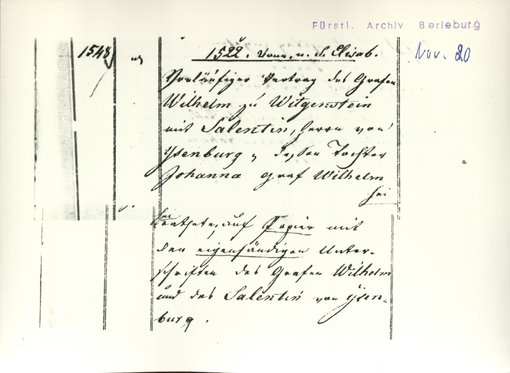 Fürstl. Archiv Berleburg
Nov. 20
1548
1522. Donn. n. d. Elisab.
Vorläufiger Vertrag des Grafen
Wilhelm zu Witgenstein
mit Salentin, Herrn von
Ysenburg u. dessen Tochter
Johanna Graf Wilhelm
hei
hei
rathete; auf Papier mit
den eigenhändigen Unter-
schriften des Grafen Wilhelm
und des Salentin von Ysen-
burg.